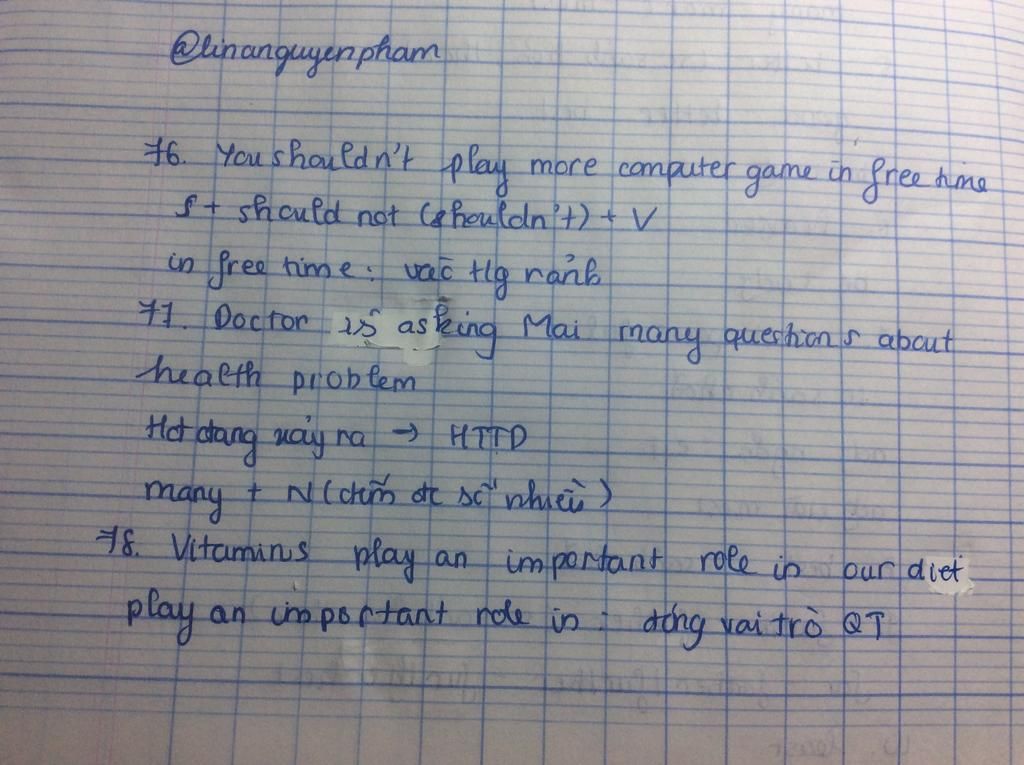 @linanguyenpham
76. You shouldn't play more computer game in free time
S + should not (shouldn't) + V
in free time : vào tg rảnh
77. Doctor is asking Mai many questions about
health problem
Hđ đang xảy ra → HTTD
many + N (đếm đc số nhiều)
78. Vitamins play an important role in our diet
play an important role in : đóng vai trò QT